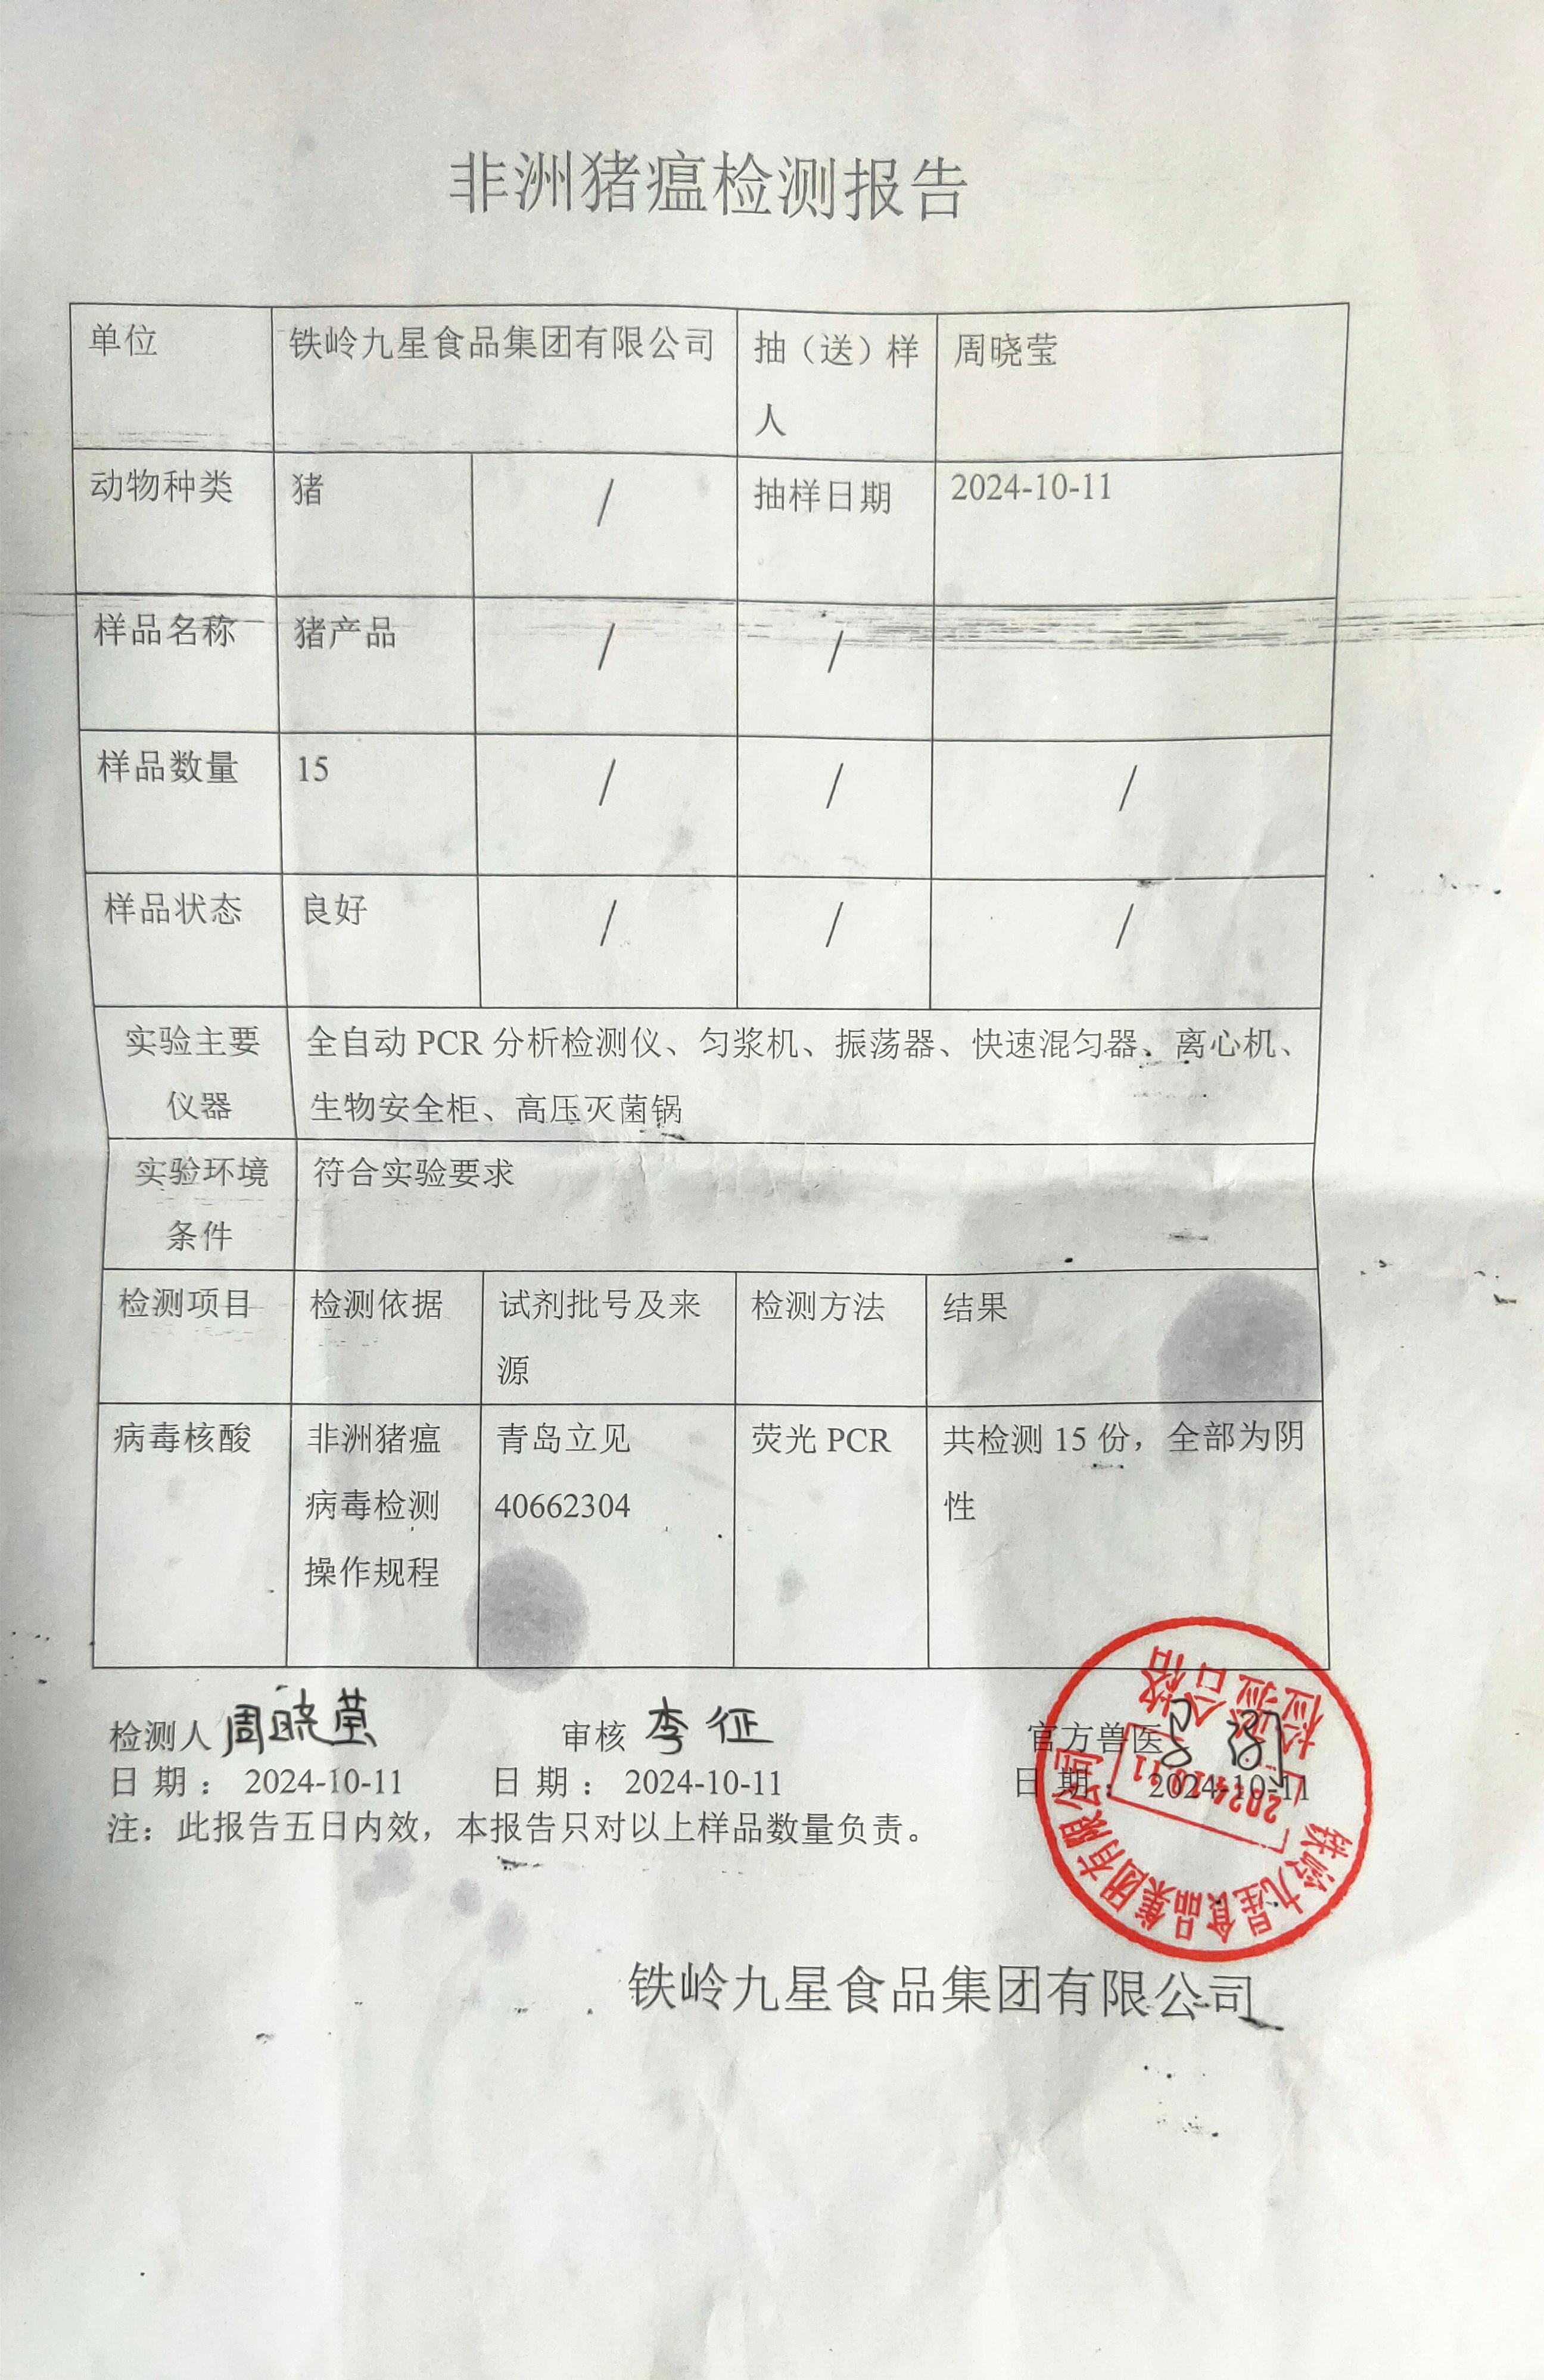 非洲猪瘟检测报告
单位 铁岭九星食品集团有限公司 抽（送）样 周晓莹
人
动物种类 猪 / 抽样日期 2024-10-11
样品名称 猪产品 / /
样品数量 15 / / /
样品状态 良好 / / /
实验主要 全自动 PCR 分析检测仪、匀浆机、振荡器、快速混匀器、离心机、
仪器 生物安全柜、高压灭菌锅
实验环境 符合实验要求
条件
检测项目 检测依据 试剂批号及来 检测方法 结果
源
病毒核酸 非洲猪瘟 青岛立见 荧光 PCR 共检测 15 份，全部为阴
病毒检测 40662304 性
操作规程
检测人 周晓莹 审核 李征 官方兽医
日 期： 2024-10-11 日 期： 2024-10-11 日 期： 2024-10-11
注：此报告五日内效，本报告只对以上样品数量负责。
铁岭九星食品集团有限公司
2024.10.11
检验合格
铁岭九星食品集团有限公司